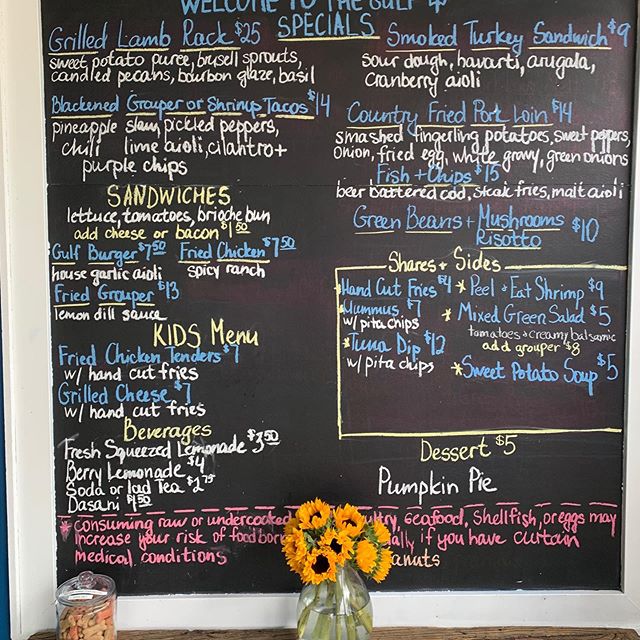 WELCOME TO THE GULF
SPECIALS
Grilled Lamb Rack $25
sweet potato puree, brusell sprouts,
candied pecans, bourbon glaze, basil
Blackened Grouper or Shrimp Tacos $14
pineapple slaw, pickled peppers,
chili lime aioli, cilantro +
purple chips
Smoked Turkey Sandwich $9
sour dough, havarti, arugala,
cranberry aioli
Country Fried Pork Loin $14
smashed fingerling potatoes, sweet peppers,
onion, fried egg, whyte gravy, green onions
Fish + Chips $15
beer battered cod, steak fries, malt aioli
Green Beans + Mushrooms
Risotto $10
SANDWICHES
lettuce, tomatoes, brioche bun
add cheese or bacon $1.50
Gulf Burger $7.50 Fried Chicken $7.50
house garlic aioli spicy ranch
Fried Grouper $13
lemon dill sauce
KIDS Menu
Fried Chicken Tenders $7
w/ hand cut fries
Grilled Cheese $7
w/ hand cut fries
Beverages
Fresh Squeezed Lemonade $3.50
Berry Lemonade $4
Soda or Iced Tea $2.75
Dasani $1.50
Shares + Sides
*Hand Cut Fries $4
*Hummus $7
w/ pita chips
*Tuna Dip $12
w/ pita chips
*Peel + Eat Shrimp $9
*Mixed Green Salad $5
tomatoes + creamy balsamic
add grouper $8
*Sweet Potato Soup $5
Dessert $5
Pumpkin Pie
*consuming raw or undercooked seafood, shellfish, or eggs may
increase your risk of if you have curtain
medical conditions